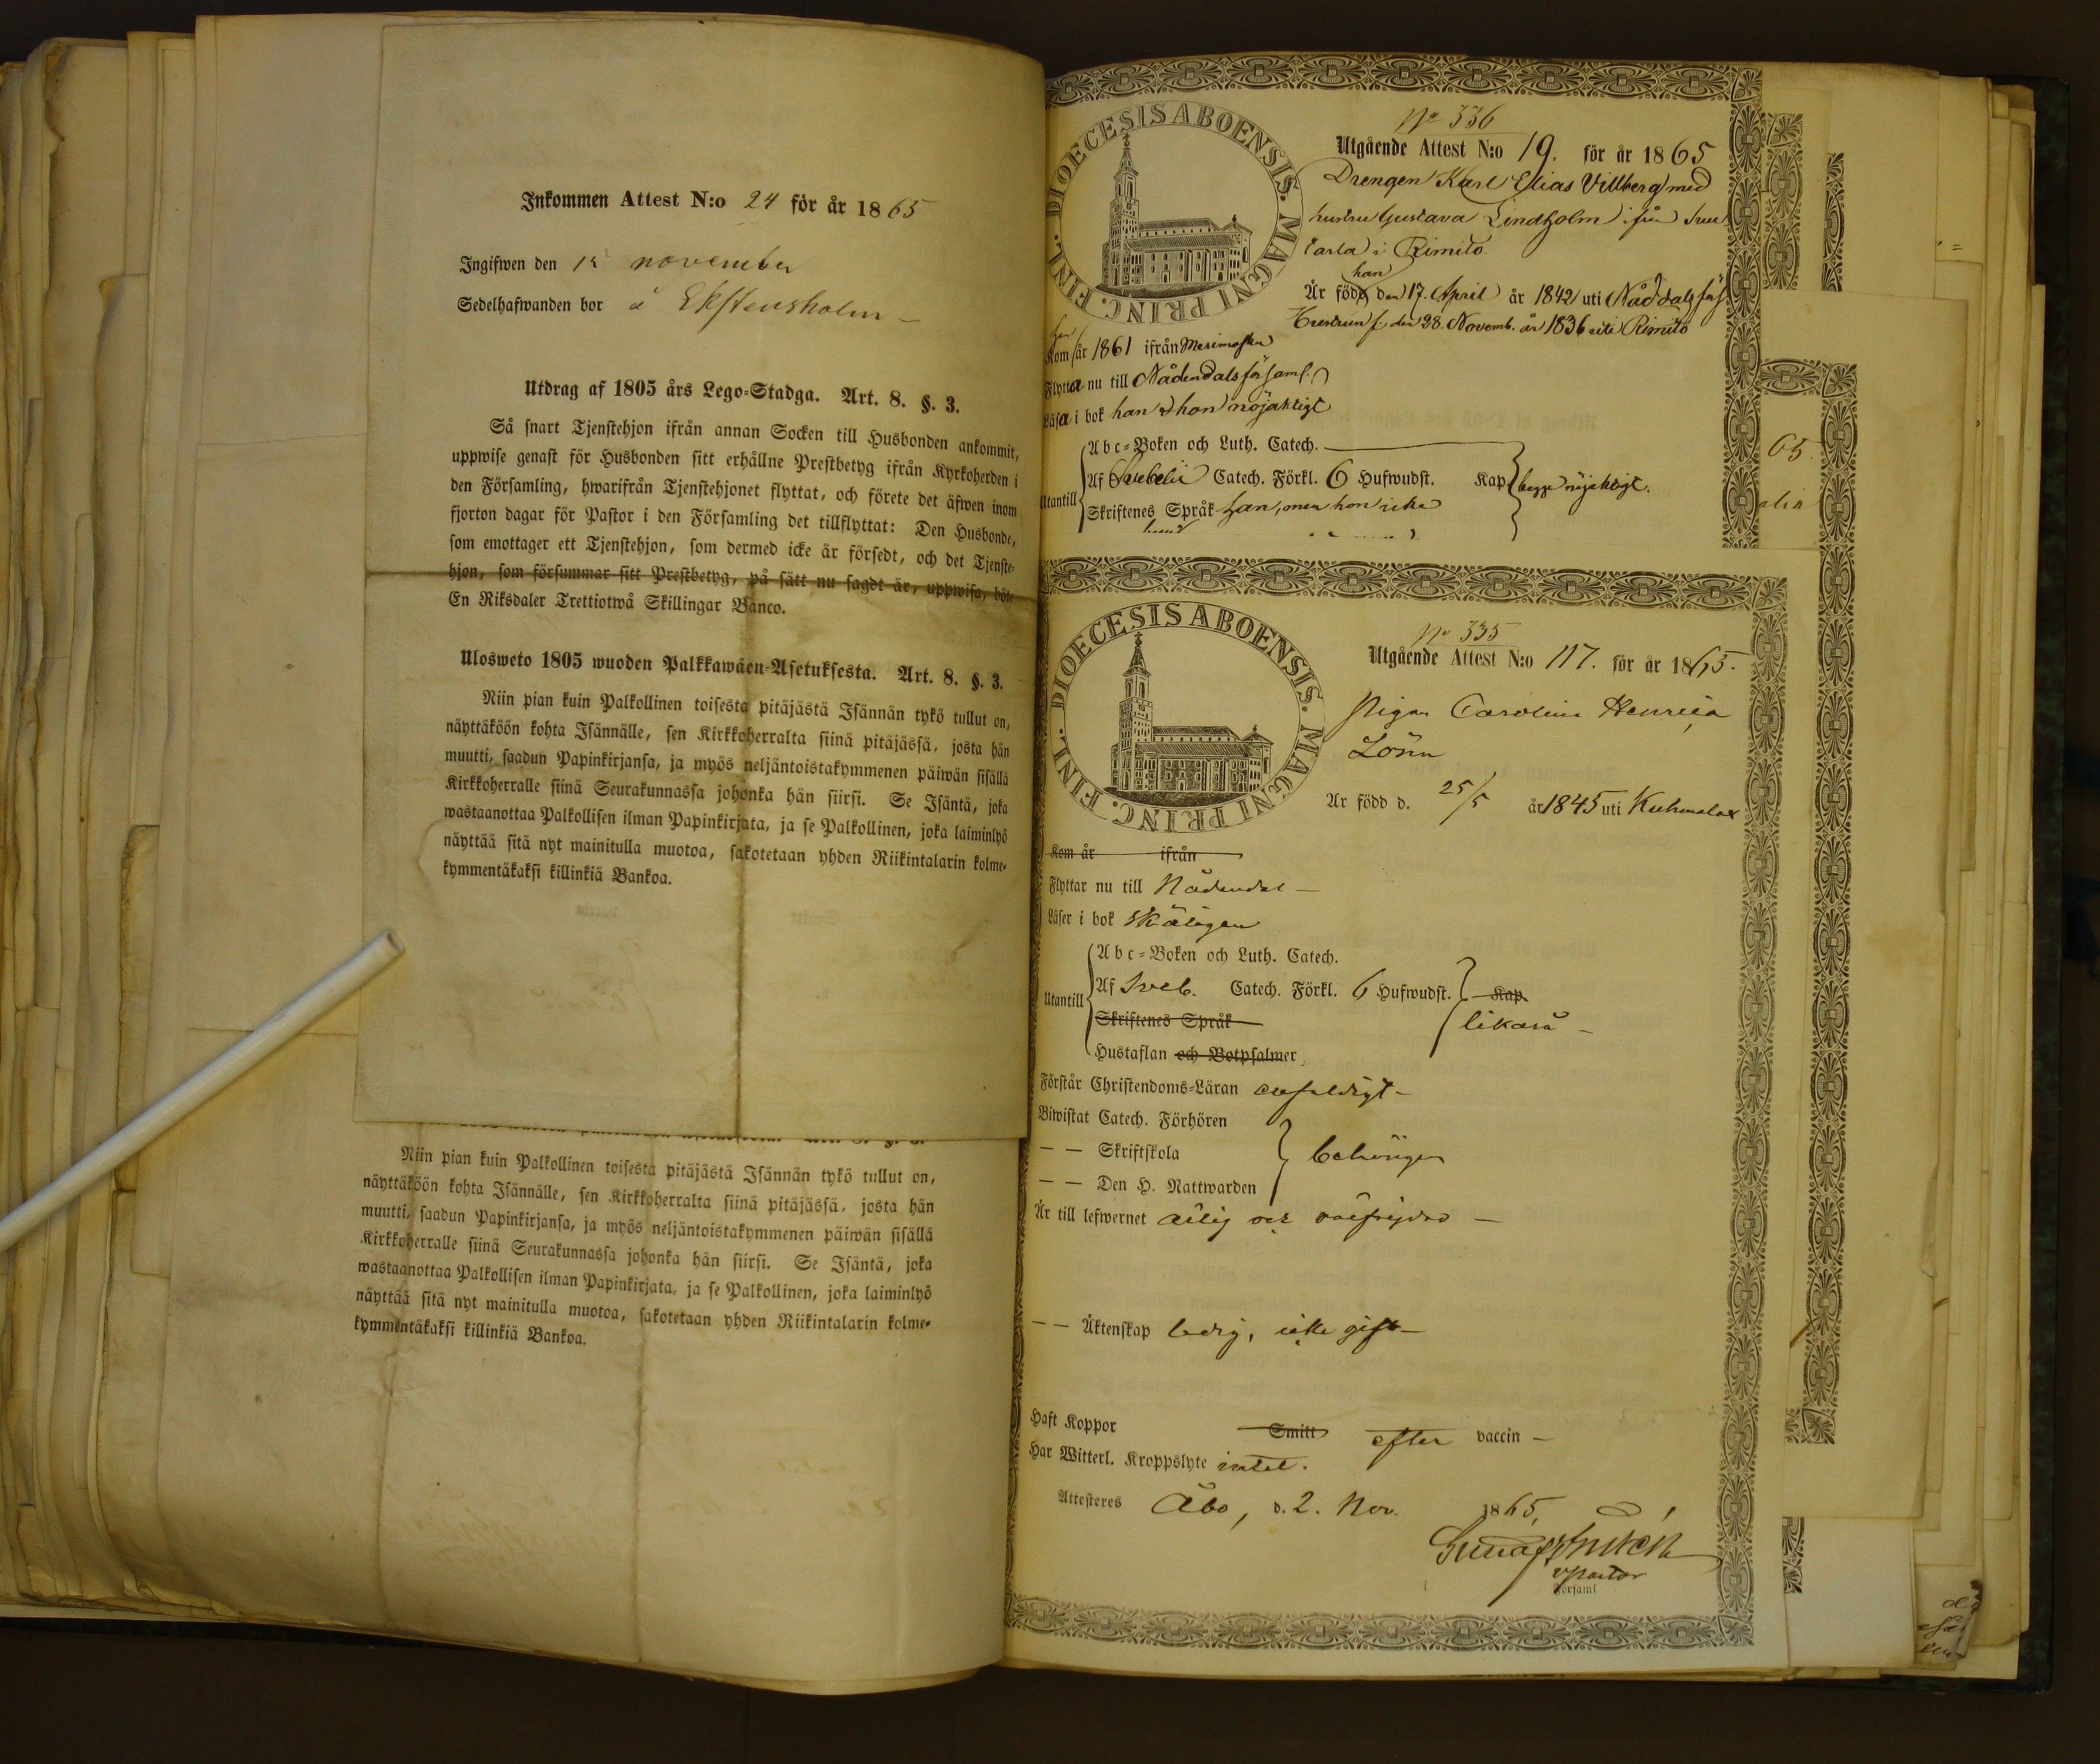 Inkommen Attest N:o 24 för år 1865
Ingifwen den november
Sedelhafwanden bor å Ekstensholm
Utdrag af 1805 års Lego-Stadga. Art. 8. §. 3.
Så snart Tjenstehjon ifrån annan Socken till Husbonden ankommit,
uppwise genast för Husbonden sitt erhållne Prestbetyg ifrån Kyrkoherden i
den Församling, hwarifrån Tjenstehjonet flyttat, och förete det äfwen inom
fjorton dagar för Pastor i den Församling det tillflyttat: Den Husbonde,
som emottager ett Tjenstehjon, som dermed icke är försedt, och det Tjenste-
hjon, som försummar sitt Prestbetyg, på sätt nu sagdt är, uppwisa, böte
En Riksdaler Trettiotwå Skillingar Banco.
Ulosweto 1805 wuoden Palkkawäen-Asetuksesta. Art. 8. §. 3.
Niin pian kuin Palkollinen toisesta pitäjästä Isännän tykö tullut on,
näyttäköön kohta Isännälle, sen Kirkkoherralta siinä pitäjässä, josta hän
muutti, saadun Papinkirjansa, ja myös neljäntoistakymmenen päiwän sisällä
Kirkkoherralle siinä Seurakunnassa johonka hän siirsi. Se Isäntä, joka
wastaanottaa Palkollisen ilman Papinkirjata, ja se Palkollinen, joka laiminlyö
näyttää sitä nyt mainitulla muotoa, sakotetaan yhden Riikintalarin kolme-
kymmentäkaksi killinkiä Bankoa.
Niin pian kuin Palkollinen toisesta pitäjästä Isännän tykö tullut on,
näyttäköön kohta Isännälle, sen Kirkkoherralta siinä pitäjässä, josta hän
muutti, saadun Papinkirjansa, ja myös neljäntoistakymmenen päiwän sisällä
Kirkkoherralle siinä Seurakunnassa johonka hän siirsi. Se Isäntä, joka
wastaanottaa Palkollisen ilman Papinkirjata, ja se Palkollinen, joka laiminlyö
näyttää sitä nyt mainitulla muotoa, sakotetaan yhden Riikintalarin kolme-
kymmentäkaksi killinkiä Bankoa.
DIOECESIS ABOENSIS. MAGNI PRINC. FINL.
No 336
Utgående Attest N:o 19. för år 1865
Drengen Karl Elias Villberg med
hustru Gustava Lindholm ifrån
i Rimito
han
Är född den 17. April år 1842 uti
Hustrun f. den 28. Novemb. år 1836 uti Rimito
han
Kom år 1861 ifrån
Flytta nu till Nådendals församl.
Läsa i bok han & hon nöjaktigt
Abc-Boken och Luth. Catech.
Utantill Af Svebelii Catech. Förkl. 6 Hufwudst. Kap begge nöjaktigt.
Skriftenes Språk han, men hon icke
65
DIOECESIS ABOENSIS. MAGNI PRINC. FINL.
No 335
Utgående Attest N:o 117. för år 1865.
Pigan Carolina Henrica
Är född d. 25/5 år 1845 uti Kuhmalax
Kom år ifrån
Flyttar nu till Nådendal
Läser i bok skäligen
Abc-Boken och Luth. Catech.
Utantill Af Sveb. Catech. Förkl. 6 Hufwudst. Kap.
Skriftenes Språk likaså
Hustaflan och Botpsalmer
Förstår Christendoms-Läran enfaldigt
Biwistat Catech. Förhören
— — Skriftskola behörigen
— — Den H. Nattwarden
Är till lefwernet ärlig och välfrejdad
— — Äktenskap ledig, icke gift
Haft Koppor Smitt efter vaccin
Har Witterl. Kroppslyte intet.
Attesteres Åbo, d. 2. Nov. 1865,
vpastor
Församl